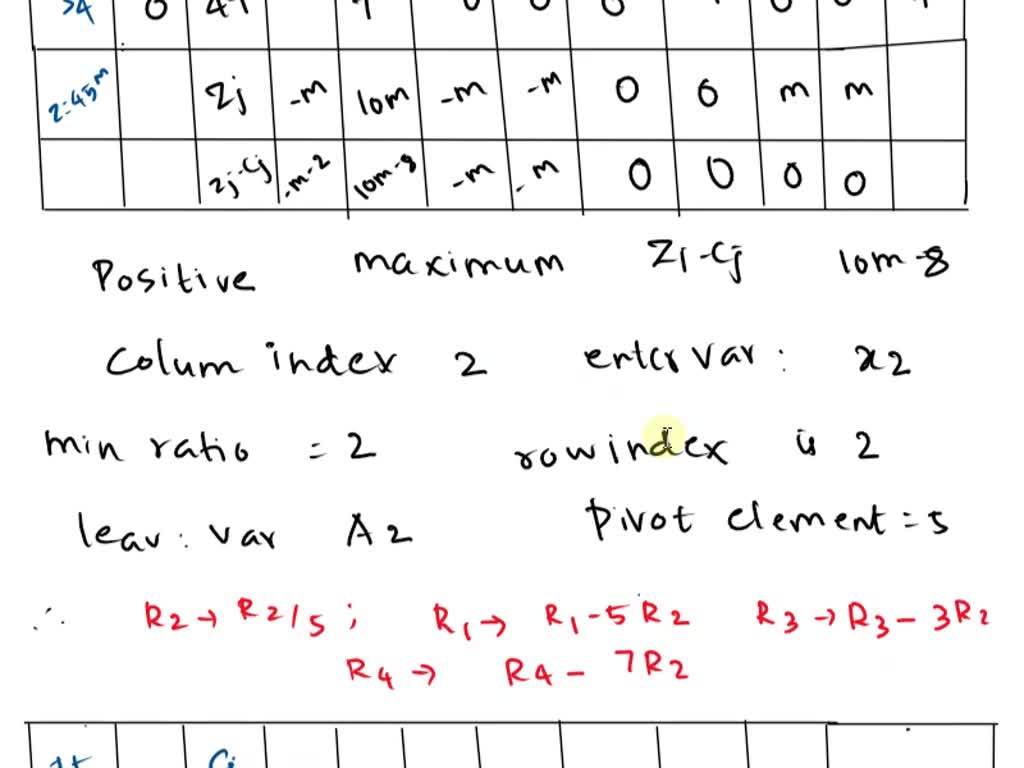 S4 0 0 0
Z=45M Zj -M 10M -M -M 0 0 M M
Zj-Cj -M-2 10M-8 -M -M 0 0 0 0
Positive maximum Zj-Cj 10M-8
Colum index 2 enter var: x2
min ratio = 2 row index is 2
leav: var A2 Pivot element = 5
∴ R2 → R2/5; R1 → R1-5R2 R3 → R3-3R2
R4 → R4-7R2
Cj